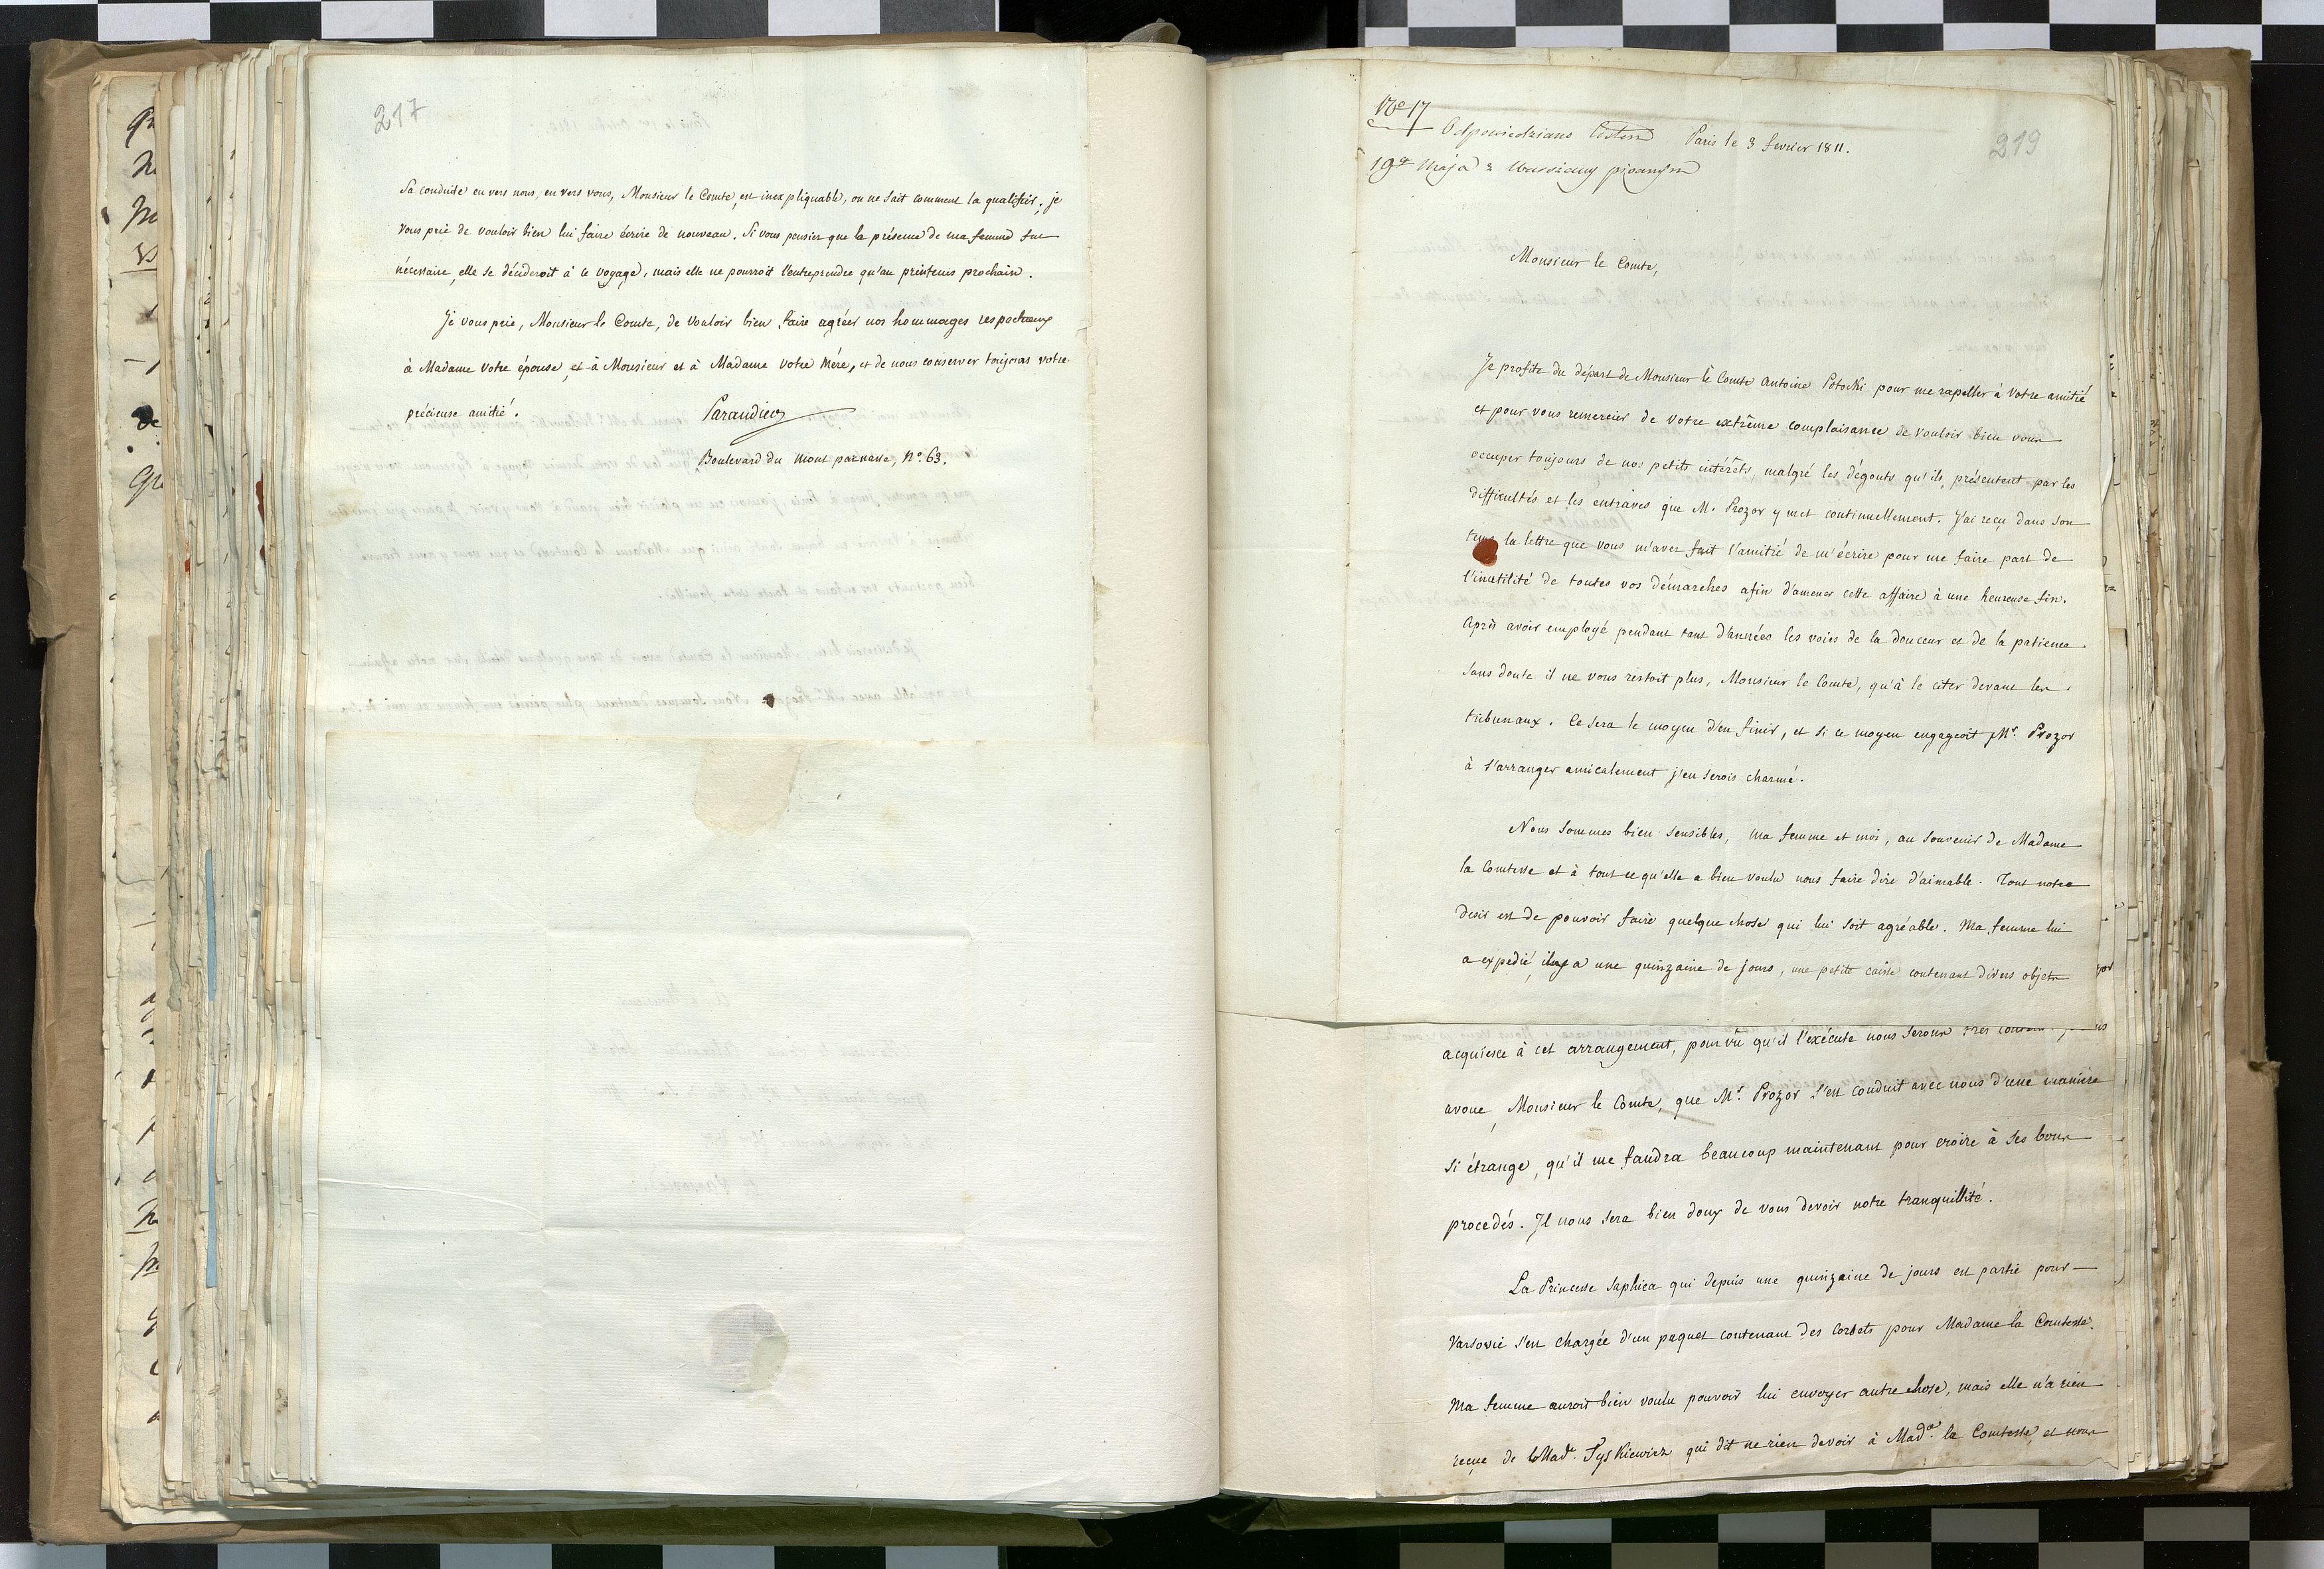 217
Sa conduite en vers nous, en vers vous, Monsieur le Comte, est inexpliquable, on ne sait comment la qualifier; je
vous prie de vouloir bien lui faire écrire de nouveau. Si vous pensiez que la présence de ma femme fut
nécessaire, elle se décideroit à ce voyage, mais elle ne pourroit l'entreprendre qu'au printems prochain.
Je vous prie, Monsieur le Comte, de vouloir bien faire agréer nos hommages respectueux
à Madame votre épouse, et à Monsieur et à Madame votre Mère, et de nous conserver toujours votre
précieuse amitié.
Parandier
Boulevard du mont parnasse, N.º 63.
Nº 17
219
Odpowiedziano listem
Paris le 3 fevrier 1811.
19go Maja z Warszawy pisanym
Monsieur le Comte,
Je profite du départ de Monsieur le Comte Antoine Potocki pour me rapeller à votre amitié
et pour vous remercier de votre extrême complaisance de vouloir bien vous
occuper toujours de nos petits intérêts, malgré les dégouts qu'ils présentent par les
difficultés et les entraves que M. Prozor y met continuellement. J'ai reçu dans son
tems la lettre que vous m'avez fait l'amitié de m'écrire pour me faire part de
l'inutilité de toutes vos démarches afin d'amener cette affaire à une heureuse fin.
Après avoir employé pendant tant d'années les voies de la douceur et de la patience
sans doute il ne vous restoit plus, Monsieur le Comte, qu'à le citer devant les
tribunaux. Ce sera le moyen d'en finir, et si ce moyen engageoit Mr. Prozor
à s'arranger amicalement j'en serois charmé.
Nous sommes bien sensibles, ma femme et moi, au souvenir de Madame
la Comtesse et à tout ce qu'elle a bien voulu nous faire dire d'aimable. Tout notre
desir est de pouvoir faire quelque chose qui lui soit agréable. Ma femme lui
a expedié, il y a une quinzaine de jours, une petite caisse contenant divers objets
acquiesce à cet arrangement, pourvû qu'il l'exécute nous serons très
avoue, Monsieur le Comte, que Mr. Prozor s'est conduit avec nous d'une manière
si étrange, qu'il me faudra beaucoup maintenant pour croire à ses bons
procedés. Il nous sera bien doux de vous devoir notre tranquillité.
La Princesse Saphiea qui depuis une quinzaine de jours est partie pour
Varsovie s'est chargée d'un paquet contenant des corsets pour Madame la Comtesse.
Ma femme auroit bien voulu pouvoir lui envoyer autre chose, mais elle n'a rien
reçue de Made. Tyskiewicz qui dit ne rien devoir à Made. la Comtesse, et nous